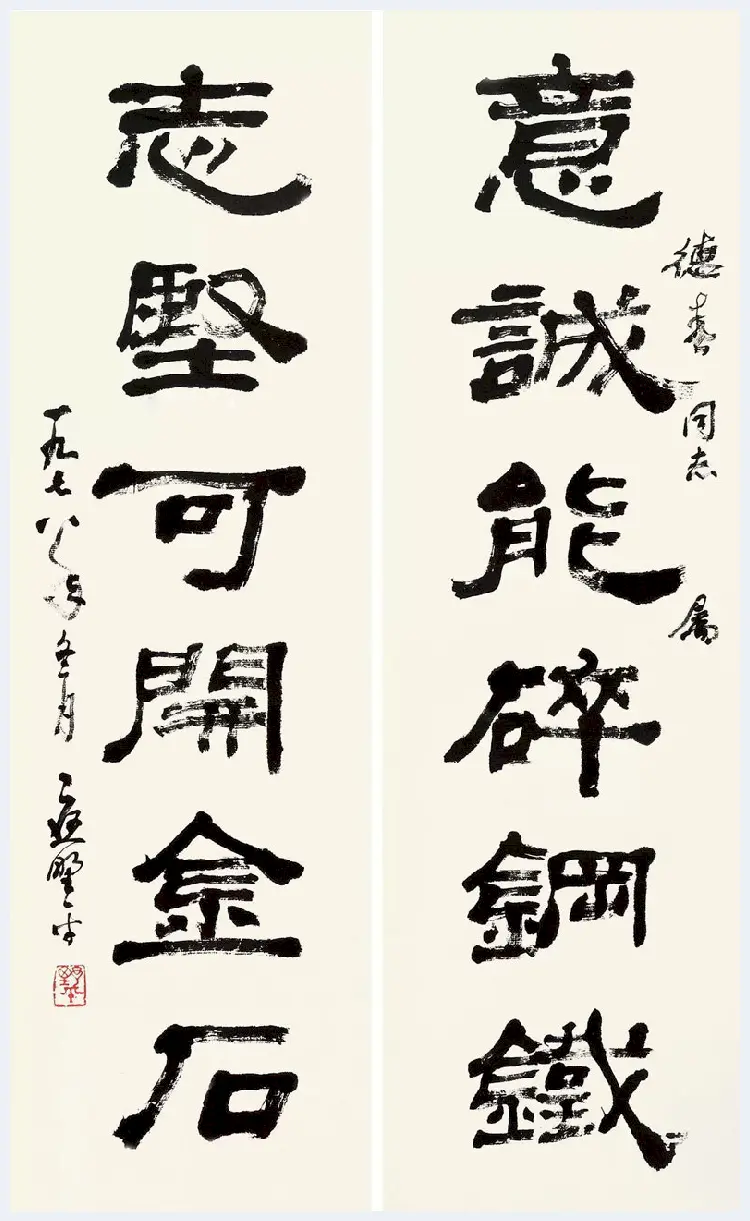 意誠能碎鋼鐵
德春同志
屬
志堅可開金石
一九七八年冬月